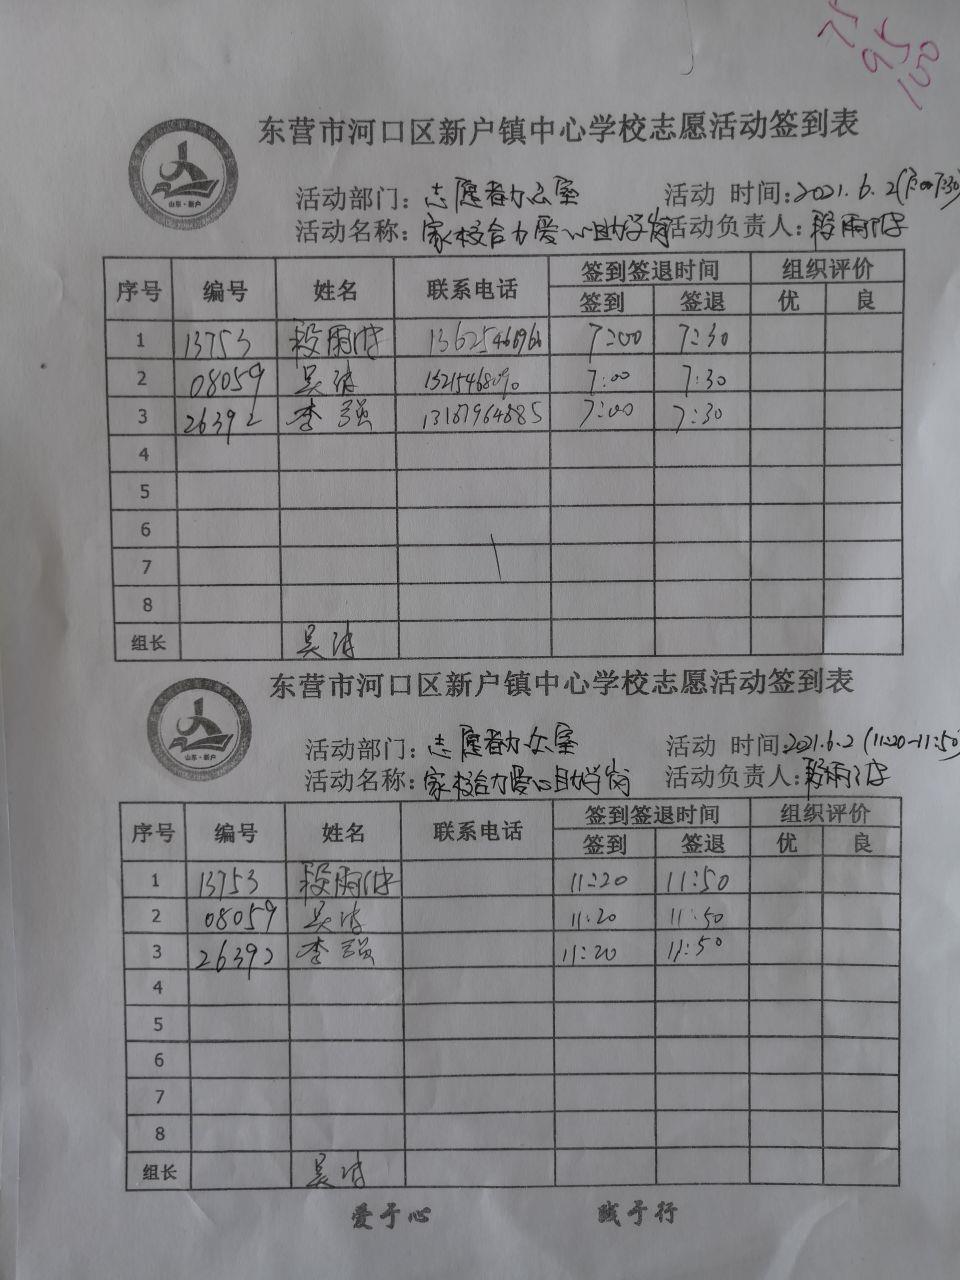 75
95
100
东营市河口区新户镇中心学校志愿活动签到表
山东·新户
活动部门：志愿者办公室 活动 时间：2021.6.2(7:00-7:30)
活动名称：家校合力爱心助学岗 活动负责人：段雨
序号 编号 姓名 联系电话 签到签退时间 组织评价
签到 签退 优 良
1 13753 段雨 7:00 7:30
2 08059 吴 7:00 7:30
3 26392 李强 13187964885 7:00 7:30
4
5
6
7
8
组长 吴
东营市河口区新户镇中心学校志愿活动签到表
山东·新户
活动部门：志愿者办公室 活动 时间：2021.6.2 (11:20-11:50)
活动名称：家校合力爱心助学岗 活动负责人：段雨
序号 编号 姓名 联系电话 签到签退时间 组织评价
签到 签退 优 良
1 13753 段雨 11:20 11:50
2 08059 吴 11:20 11:50
3 26392 李强 11:20 11:50
4
5
6
7
8
组长 吴
爱于心 践于行